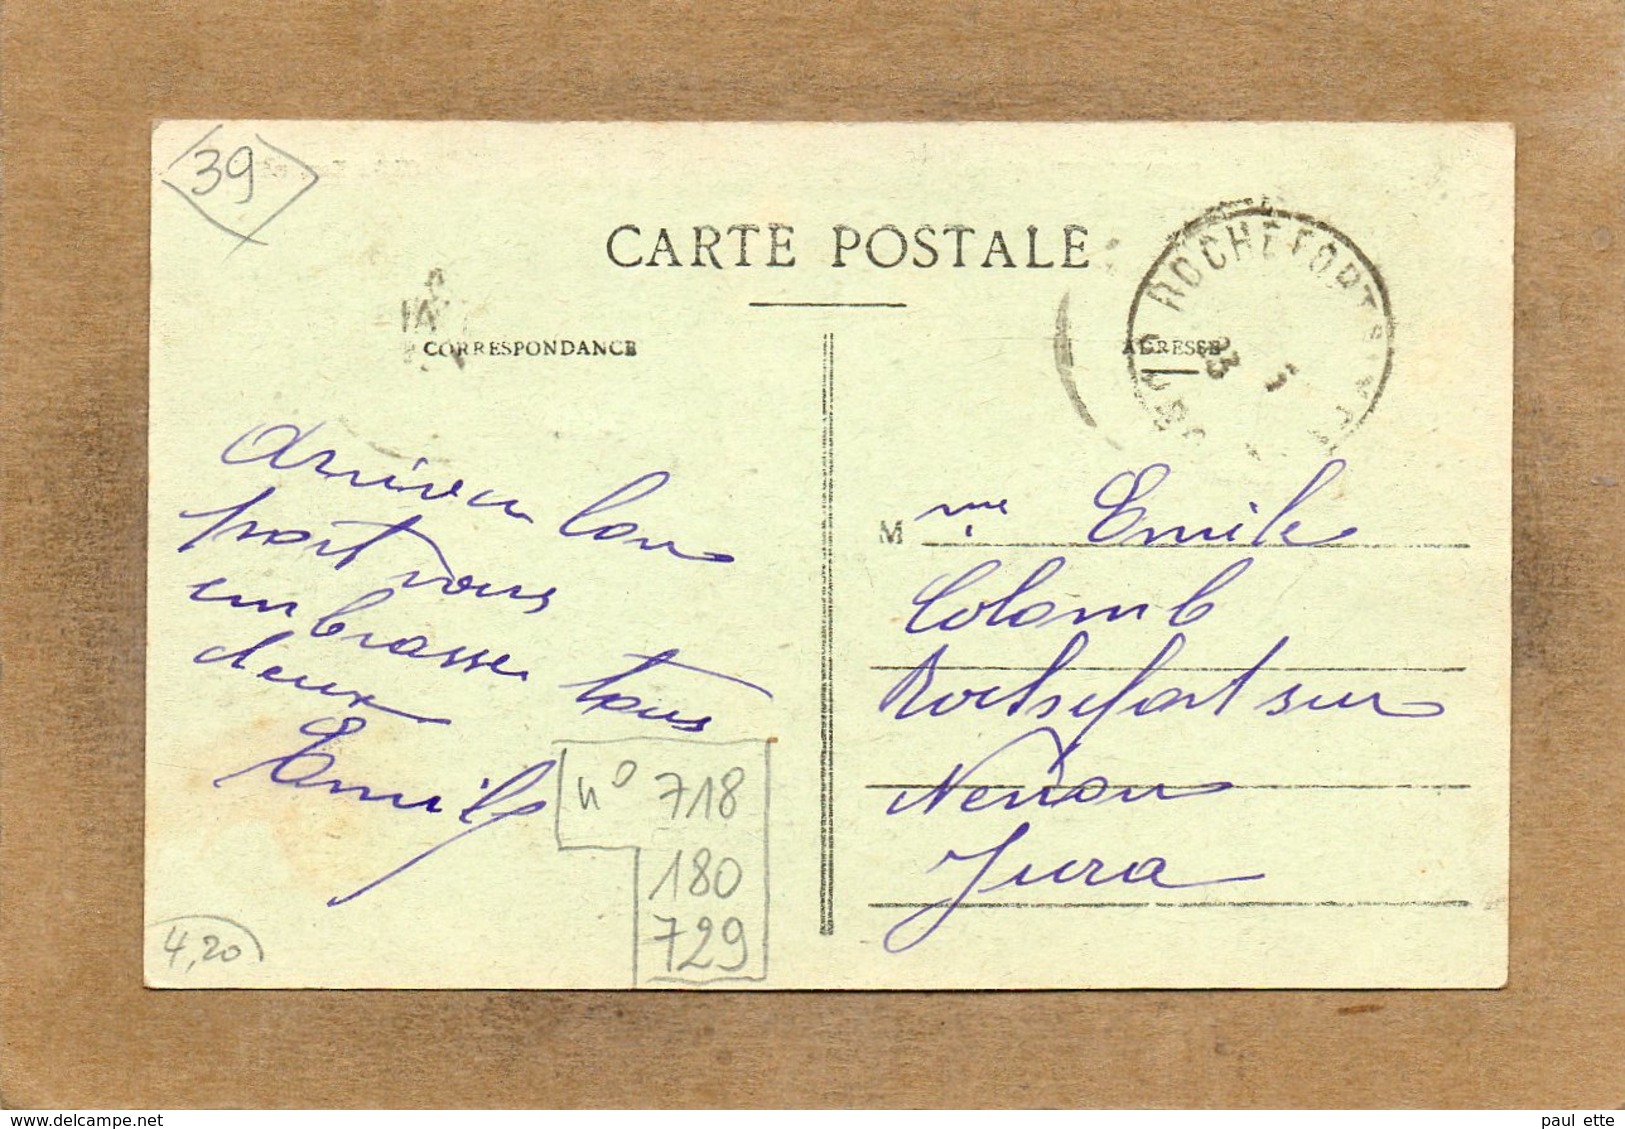 39
CARTE POSTALE
CORRESPONDANCE
ADRESSE
ROCHEFORT S
23
arrivée bon
port vous
embrasse tous
deux
Emile
Mme Emile
Colomb
Rochefort sur
Nenon
Jura
n° 718
180
729
4,20
www.delcampe.net
paul ette